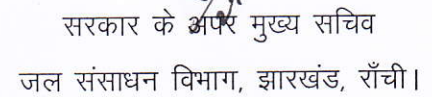 सरकार के अपर मुख्य सचिव
जल संसाधन विभाग, झारखंड, राँची।